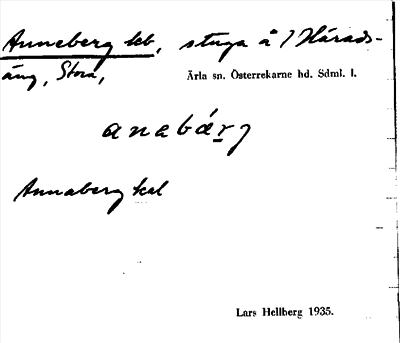 Anneberg kb, stuga å / Härads-
äng, Stora,
Ärla sn. Österrekarne hd. Sdml. l.
anabárj
Annaberg kal
Lars Hellberg 1935.